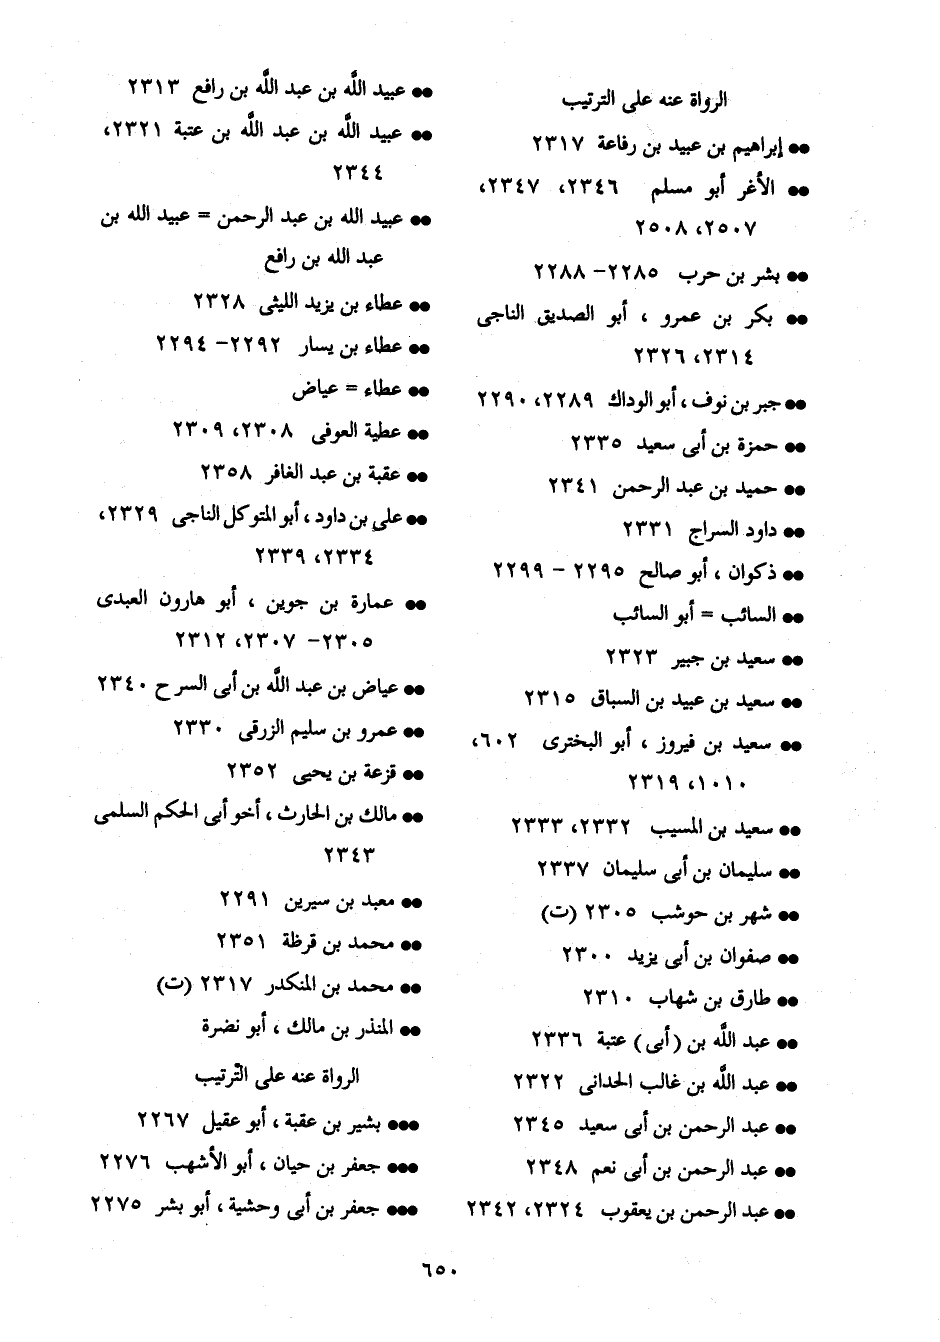 الرواة عنه على الترتيب
●● إبراهيم بن عبيد بن رفاعة ٢٣١٧
●● الأغر أبو مسلم ٢٣٤٦، ٢٣٤٧،
٢٥٠٧، ٢٥٠٨
●● بشر بن حرب ٢٢٨٥– ٢٢٨٨
●● بكر بن عمرو ، أبو الصديق الناجى
٢٣١٤، ٢٣٢٦
●● جبر بن نوف ، أبو الوداك ٢٢٨٩، ٢٢٩٠
●● حمزة بن أبى سعيد ٢٣٣٥
●● حميد بن عبد الرحمن ٢٣٤١
●● داود السراج ٢٣٣١
●● ذكوان ، أبو صالح ٢٢٩٥ – ٢٢٩٩
●● السائب = أبو السائب
●● سعيد بن جبير ٢٣٢٣
●● سعيد بن عبيد بن السباق ٢٣١٥
●● سعيد بن فيروز ، أبو البخترى ٦٠٢،
١٠١٠، ٢٣١٩
●● سعيد بن المسيب ٢٣٣٢، ٢٣٣٣
●● سليمان بن أبى سليمان ٢٣٣٧
●● شهر بن حوشب ٢٣٠٥ (ت)
●● صفوان بن أبى يزيد ٢٣٠٠
●● طارق بن شهاب ٢٣١٠
●● عبد اللَّه بن (أبى) عتبة ٢٣٣٦
●● عبد اللَّه بن غالب الحدانى ٢٣٢٢
●● عبد الرحمن بن أبى سعيد ٢٣٤٥
●● عبد الرحمن بن أبى نعم ٢٣٤٨
●● عبد الرحمن بن يعقوب ٢٣٢٤، ٢٣٤٢
●● عبيد اللَّه بن عبد اللَّه بن رافع ٢٣١٣
●● عبيد اللَّه بن عبد اللَّه بن عتبة ٢٣٢١،
٢٣٤٤
●● عبيد الله بن عبد الرحمن = عبيد الله بن
عبد الله بن رافع
●● عطاء بن يزيد الليثى ٢٣٢٨
●● عطاء بن يسار ٢٢٩٢– ٢٢٩٤
●● عطاء = عياض
●● عطية العوفى ٢٣٠٨، ٢٣٠٩
●● عقبة بن عبد الغافر ٢٣٥٨
●● على بن داود ، أبو المتوكل الناجى ٢٣٢٩،
٢٣٣٤، ٢٣٣٩
●● عمارة بن جوين ، أبو هارون العبدى
٢٣٠٥– ٢٣٠٧، ٢٣١٢
●● عياض بن عبد اللَّه بن أبى السرح ٢٣٤٠
●● عمرو بن سليم الزرقى ٢٣٣٠
●● قزعة بن يحيى ٢٣٥٢
●● مالك بن الحارث ، أخو أبى الحكم السلمى
٢٣٤٣
●● معبد بن سيرين ٢٢٩١
●● محمد بن قرظة ٢٣٥١
●● محمد بن المنكدر ٢٣١٧ (ت)
●● المنذر بن مالك ، أبو نضرة
الرواة عنه على الترتيب
●●● بشير بن عقبة ، أبو عقيل ٢٢٦٧
●●● جعفر بن حيان ، أبو الأشهب ٢٢٧٦
●●● جعفر بن أبى وحشية ، أبو بشر ٢٢٧٥
٦٥٠